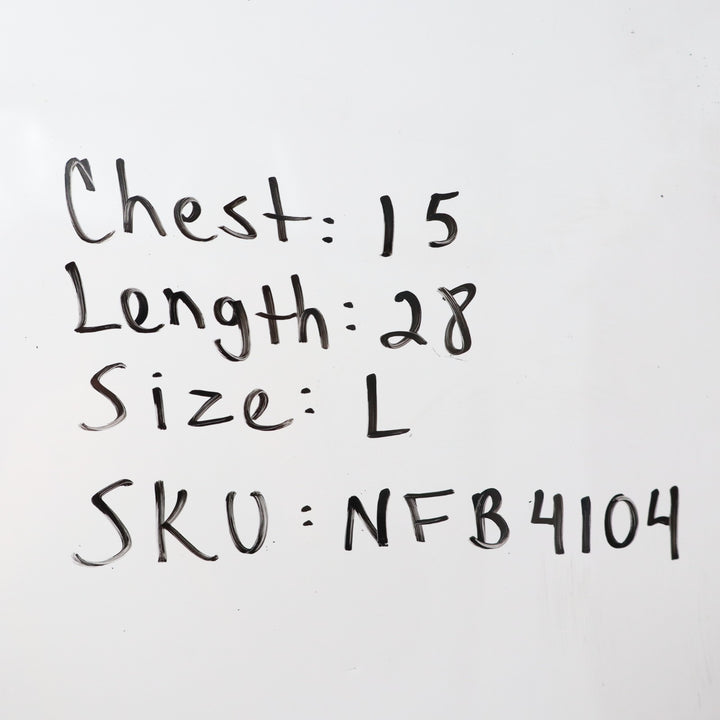 Chest: 15
Length: 28
Size: L
SKU: NFB4104